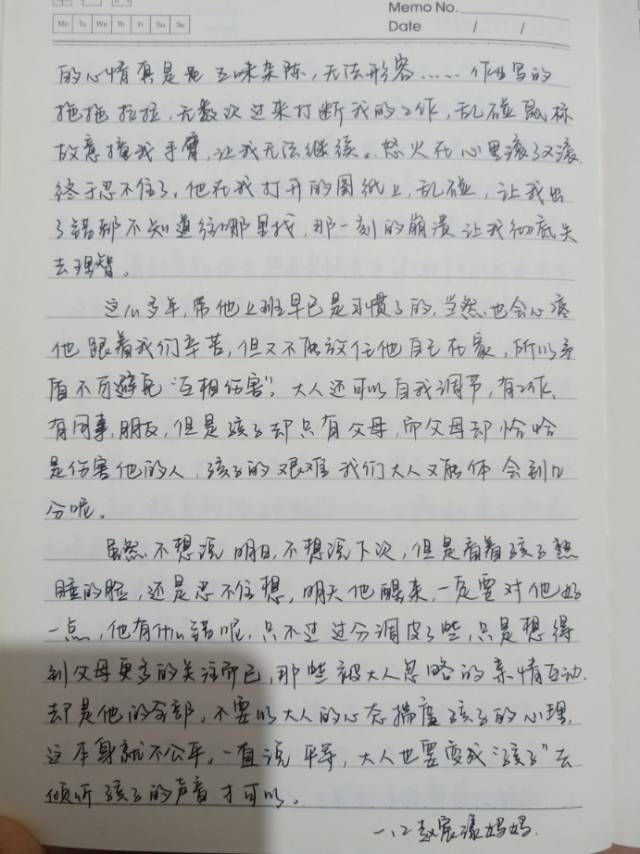 Memo No.
Mo Tu We Th Fr Sa Su
Date / /
的心情真是是五味杂陈,无法形容……作业写的
拖拖拉拉,无数次过来打断我的工作,乱碰鼠标
故意撞我手臂,让我无法继续。怒火在心里滚了又滚,
终于忍不住了,他在我打开的图纸上,乱碰,让我出
了错都不知道往哪里找,那一刻的崩溃让我彻底失
去理智。
这么多年,带他上班早已是习惯了的,当然也会心疼
他跟着我们辛苦,但又不能放任他自己在家,所以矛
盾不可避免“互相伤害”,大人还可以自我调节,有工作、
有同事、朋友,但是孩子却只有父母,而父母却恰恰
是伤害他的人,孩子的艰难我们大人又能体会到几
分呢。
虽然不想说明日,不想说下次,但是看着孩子熟
睡的脸,还是忍不住想,明天他醒来,一定要对他好
一点,他有什么错呢,只不过过分调皮了些,只是想得
到父母更多的关注而已,那些被大人忽略的亲情互动,
却是他的全部。不要以大人的心态揣度孩子的心理,
这本身就不公平。一直说平等,大人也要变成“孩子”去
倾听孩子的声音才可以。
一、2赵宸漾妈妈.